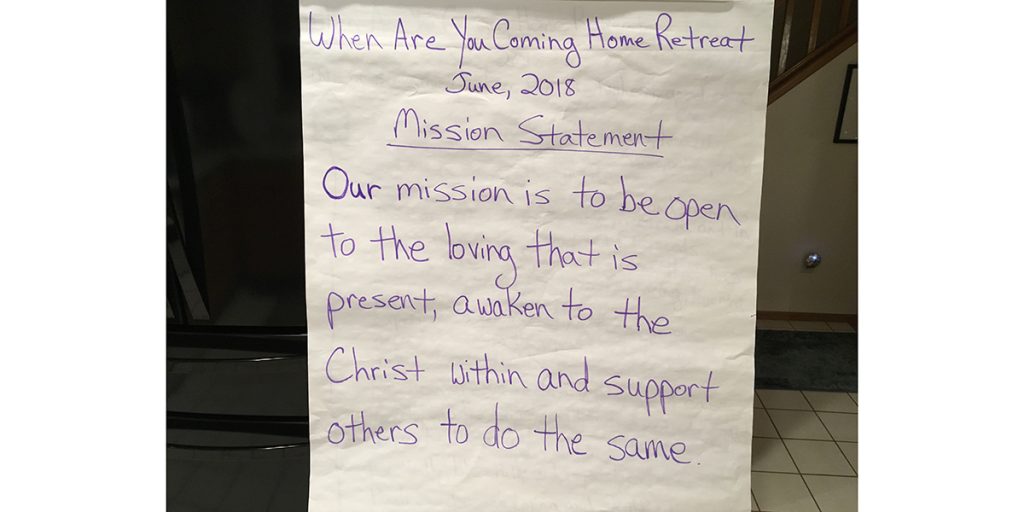 When Are You Coming Home Retreat
June, 2018
Mission Statement
Our mission is to be open
to the loving that is
present, awaken to the
Christ within and support
others to do the same.